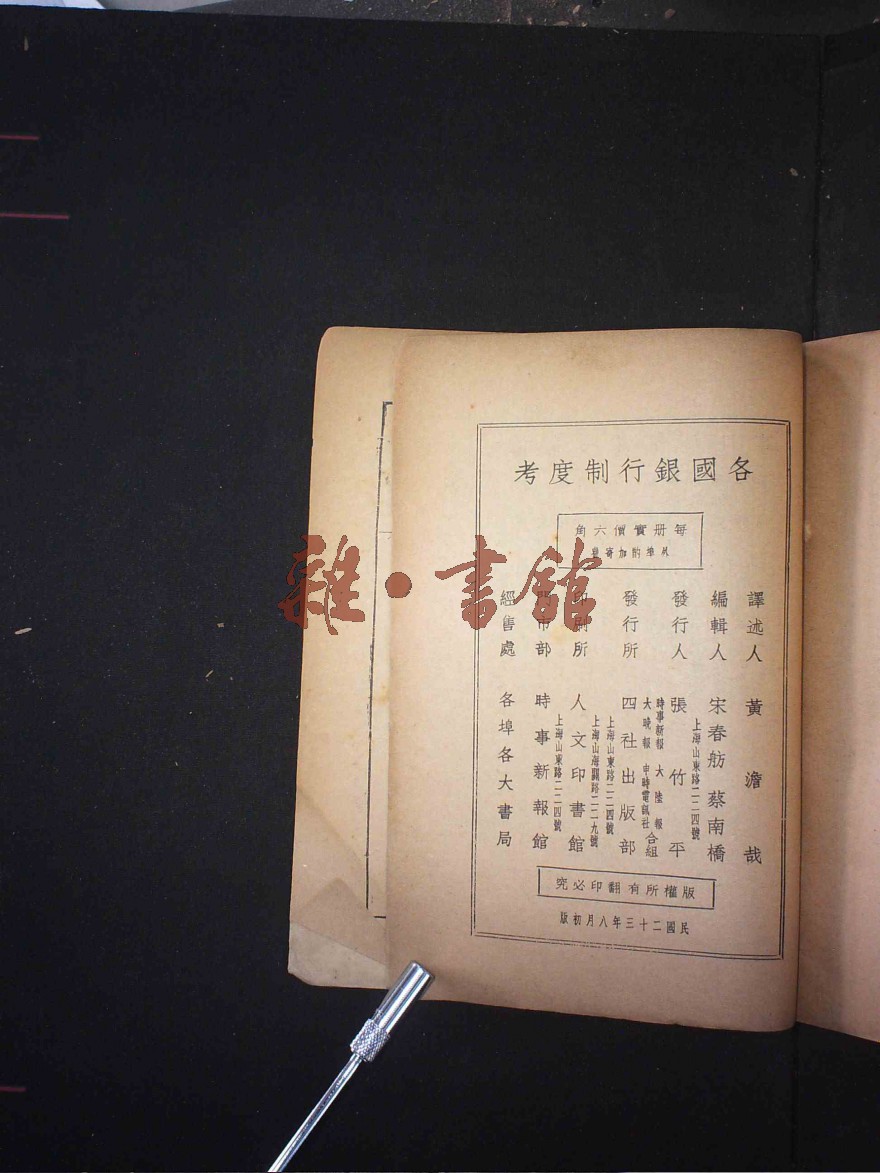 各國銀行制度考
每册實價六角
外埠酌加寄費
譯述人 黃澹哉
編輯人 宋春舫 蔡南橋
發行人 張竹平
上海山東路二二四號
發行所 四社出版部
時事新報 大陸報
大晚報 申時電訊社
合組
上海山東路二二四號
印刷所 人文印書館
上海山海關路二二九號
門市部 時事新報館
上海山東路二二四號
經售處 各埠各大書局
版權所有翻印必究
民國二十三年八月初版
雜·書館